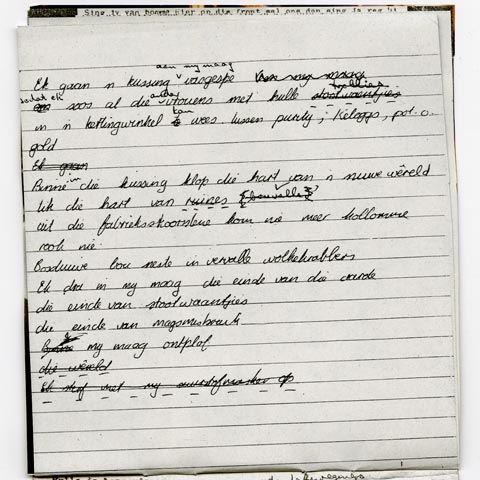 Sing jy van
aan my maag
Ek gaan 'n kussing vasgespe
sodat ek soos al die ander vrouens met hulle trollies
in 'n kettingwinkel kan wees tussen purity, kelloggs, pot o
gold
Ek gaan
Binne in die kussing klop die hart van 'n nuwe wêreld
lik die hart van ruines
uit die fabrieksskoorstene kom nie meer kolomme
rook nie
Bosduiwe bou neste in vervalle wolkekrabbers
Ek dra in my maag die einde van die aarde
die einde van stootwaentjies
die einde van magsmisbruik
my maag ontplof
die wêreld
Ek sterf met my suurstofmasker op